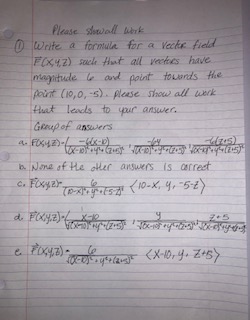 Please show all work
① Write a formula for a vector field
F(x,y,z) such that all vectors have
magnitude 6 and point towards the
point (10,0,-5). Please show all work
that leads to your answer.
Group of answers
a. F(x,y,z)=⟨-6(x-10)/√((x-10)²+y²+(z+5)²), -6y/√((x-10)²+y²+(z+5)²), -6(z+5)/√((x-10)²+y²+(z+5)²)⟩
b. None of the other answers is correct
c. F(x,y,z)= 6/((10-x)²+y²+(-5-z)²) ⟨10-x, y, -5-z⟩
d. F(x,y,z)=⟨x-10/√((x-10)²+y²+(z+5)²), y/√((x-10)²+y²+(z+5)²), z+5/√((x-10)²+y²+(z+5)²)⟩
e. F(x,y,z)= 6/√((x-10)²+y²+(z+5)²) ⟨x-10, y, z+5⟩